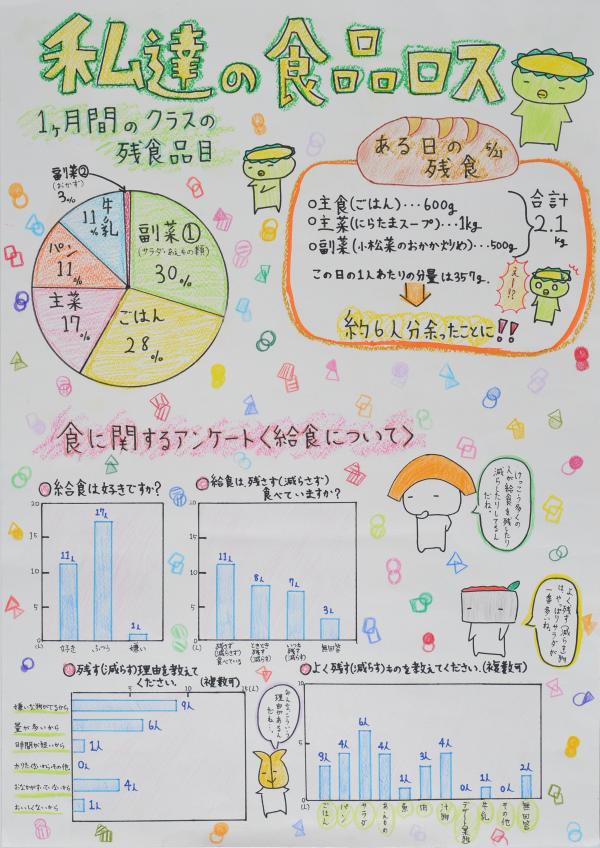 私達の食品ロス
1ヶ月間のクラスの
残食品目
副菜②
(おかず)
3%
牛乳
11%
パン
11%
主菜
17%
副菜①
(サラダ・あえもの類)
30%
ごはん
28%
ある日の 5/21
残食
○主食(ごはん)…600g
○主菜(にらたまスープ)…1kg
○副菜(小松菜のおかか炒め)…500g
合計
2.1
kg
この日の1人あたりの分量は357g.
えー!?
約6人分余ったことに!!
食に関するアンケート〈給食について〉
○給食は好きですか?
20
15
10
5
0
(人)
11人
17人
1人
好き
ふつう
嫌い
○給食は、残さず(減らさず)
食べていますか?
20
15
10
5
0
(人)
11人
8人
7人
3人
残さず
(減らさず)
食べている
ときどき
残す
(減らす)
いつも
残す
(減らす)
無回答
けっこう多くの
人が給食を残したり
減らしたりしてるん
だね。
よく残す(減らす)物
は、やっぱりサラダが
一番多いね。
○残す(減らす)理由を教えて
ください。(複数可)
5
10
15(人)
嫌いな物がでるから
9人
量が多いから
6人
時間が短いから
1人
0人
おなかがすいていないから
4人
おいしくないから
1人
みんな、こういう
理由があるん
だね…
○よく残す(減らす)ものを教えてください。(複数可)
10
5
0
(人)
3人
4人
6人
4人
1人
3人
4人
0人
1人
0人
2人
ごはん
パン
サラダ
あえもの
魚
肉
汁物
デザート・果物
牛乳
その他
無回答